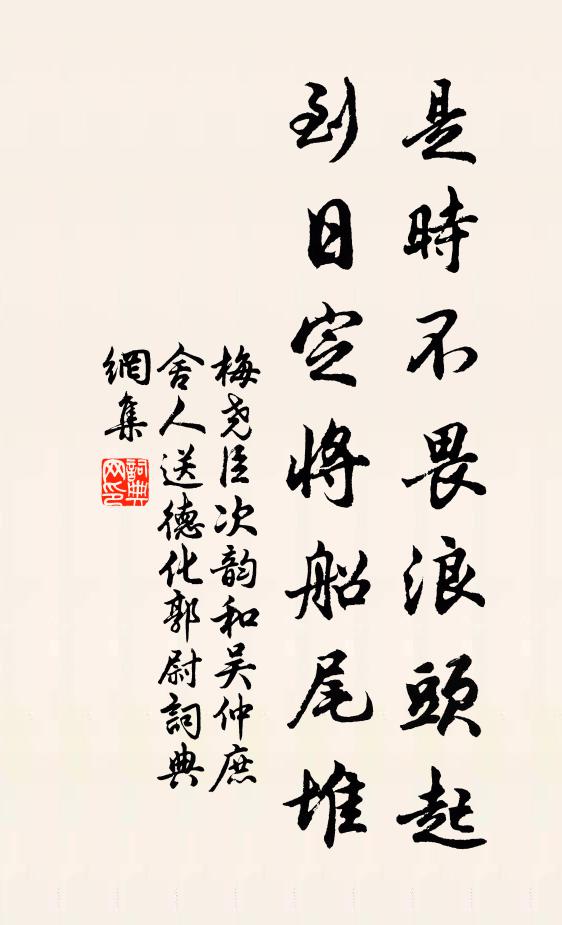 是時不畏浪頭起
到日定將船尾堆
梅尧臣次韵和吴仲庶
舍人送德化郭尉詞典
網集
詞典
网印